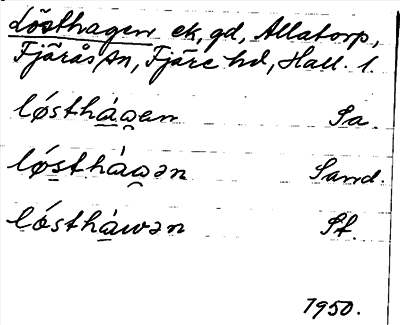 Lösthagen ek, gd, Allatorp,
Fjärås sn, Fjäre hd, Hall. l.
lǿsthàgen Sa.
lǿsthàgən Sand.
lǿsthàwən St.
1950.